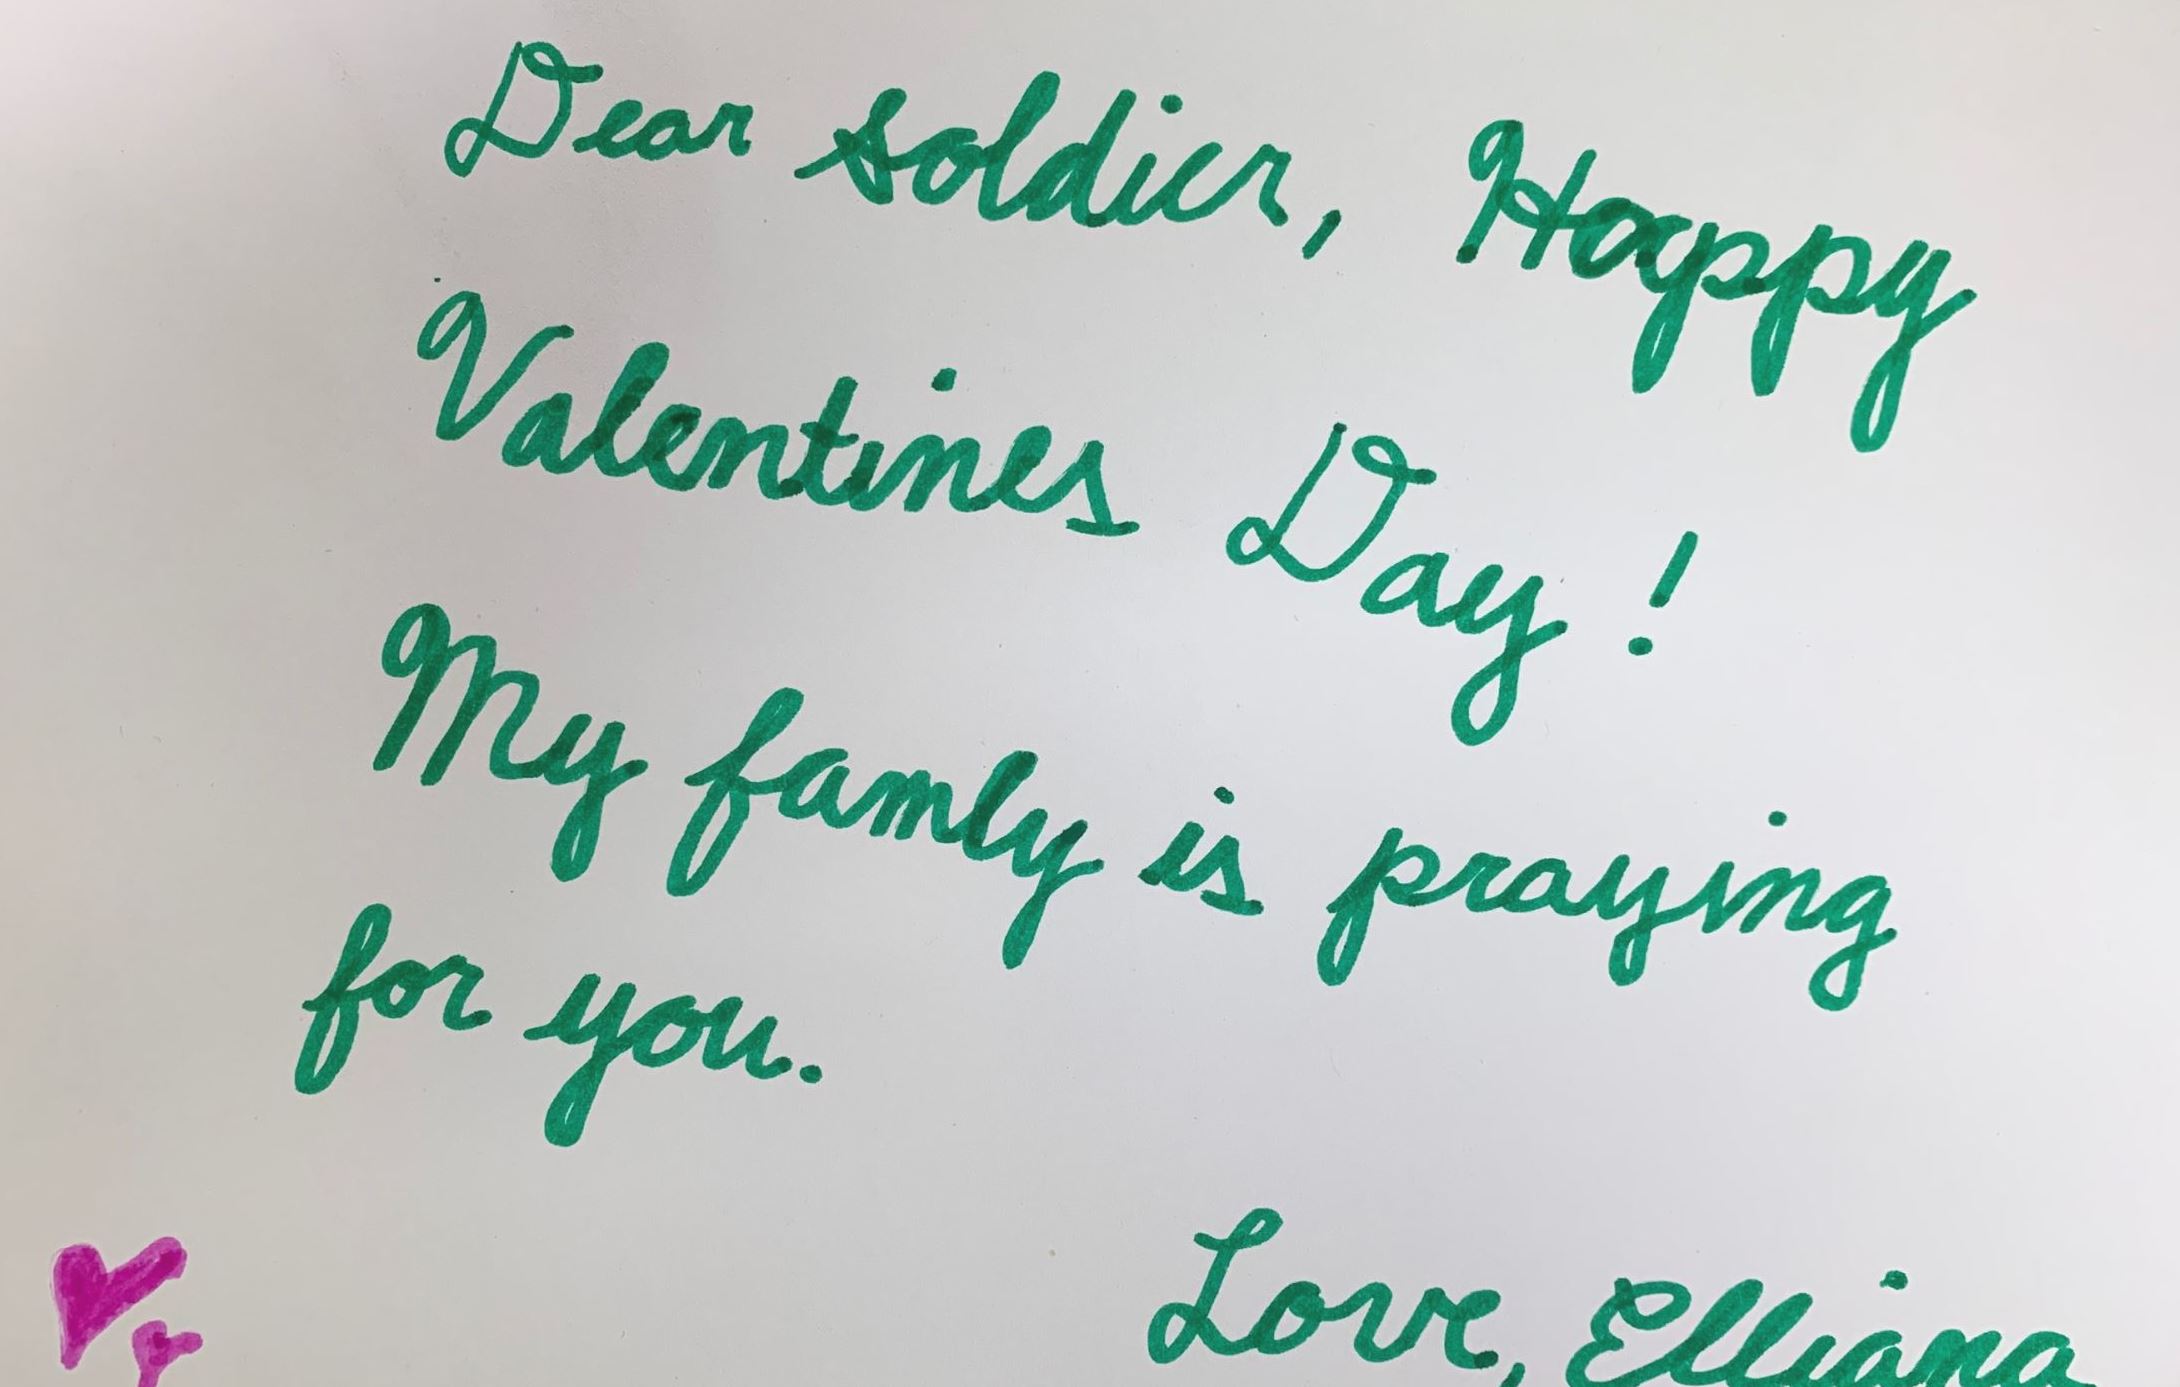 Dear soldier, Happy
Valentines Day!
My famly is praying
for you.
Love, Elliana